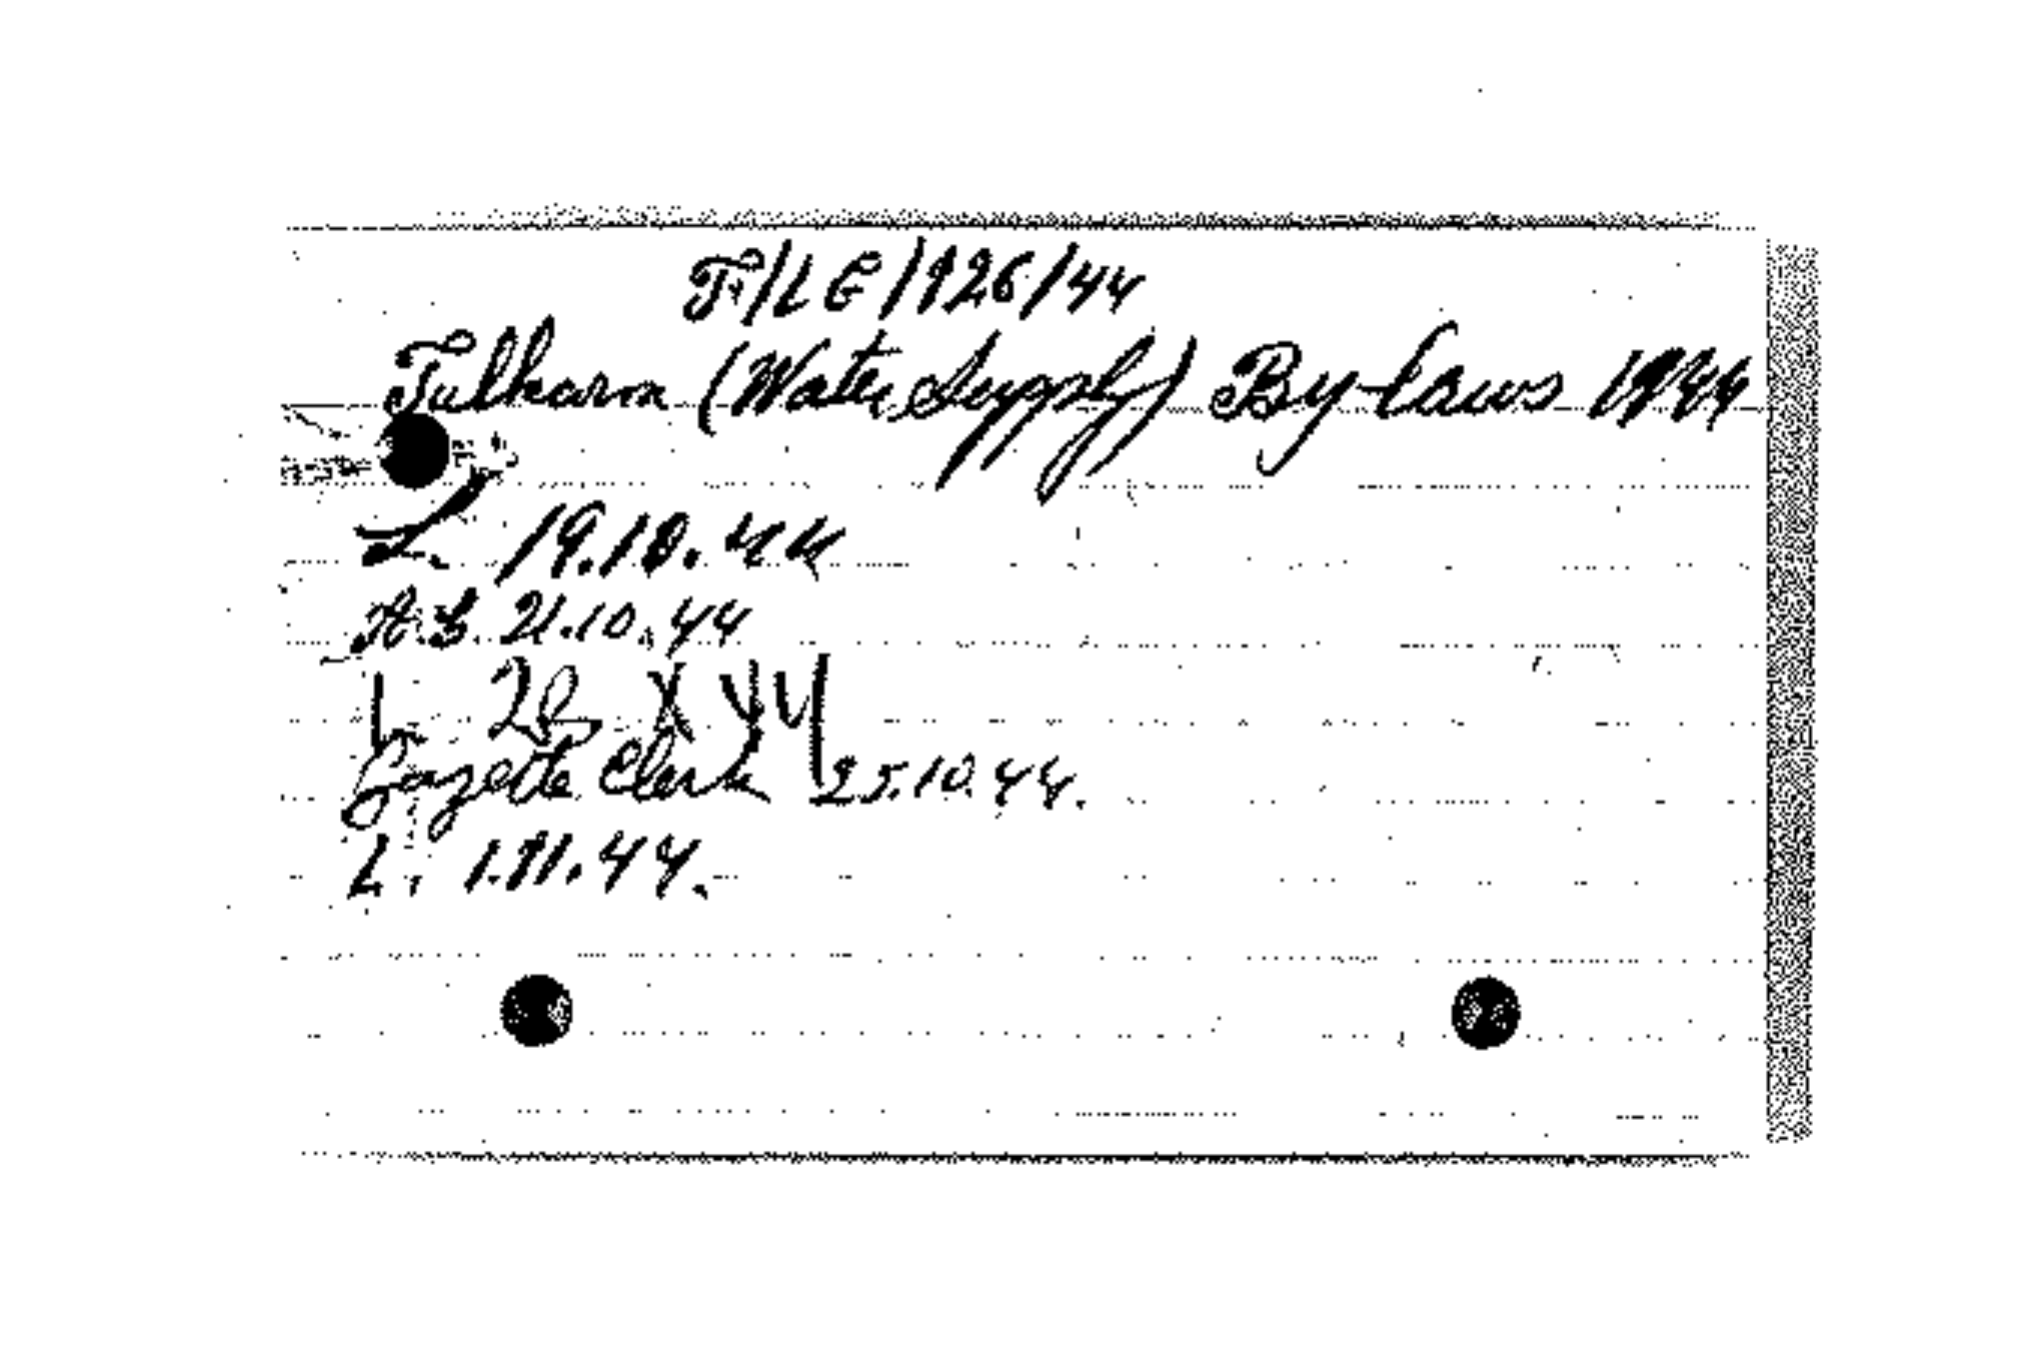 F/LG/126/44
Tulkarm (Water Supply) By-laws 1944
L. 19.10.44
A.G. 21.10.44
L. X 44
Gazette Clerk 25.10.44.
L. 1.11.44.